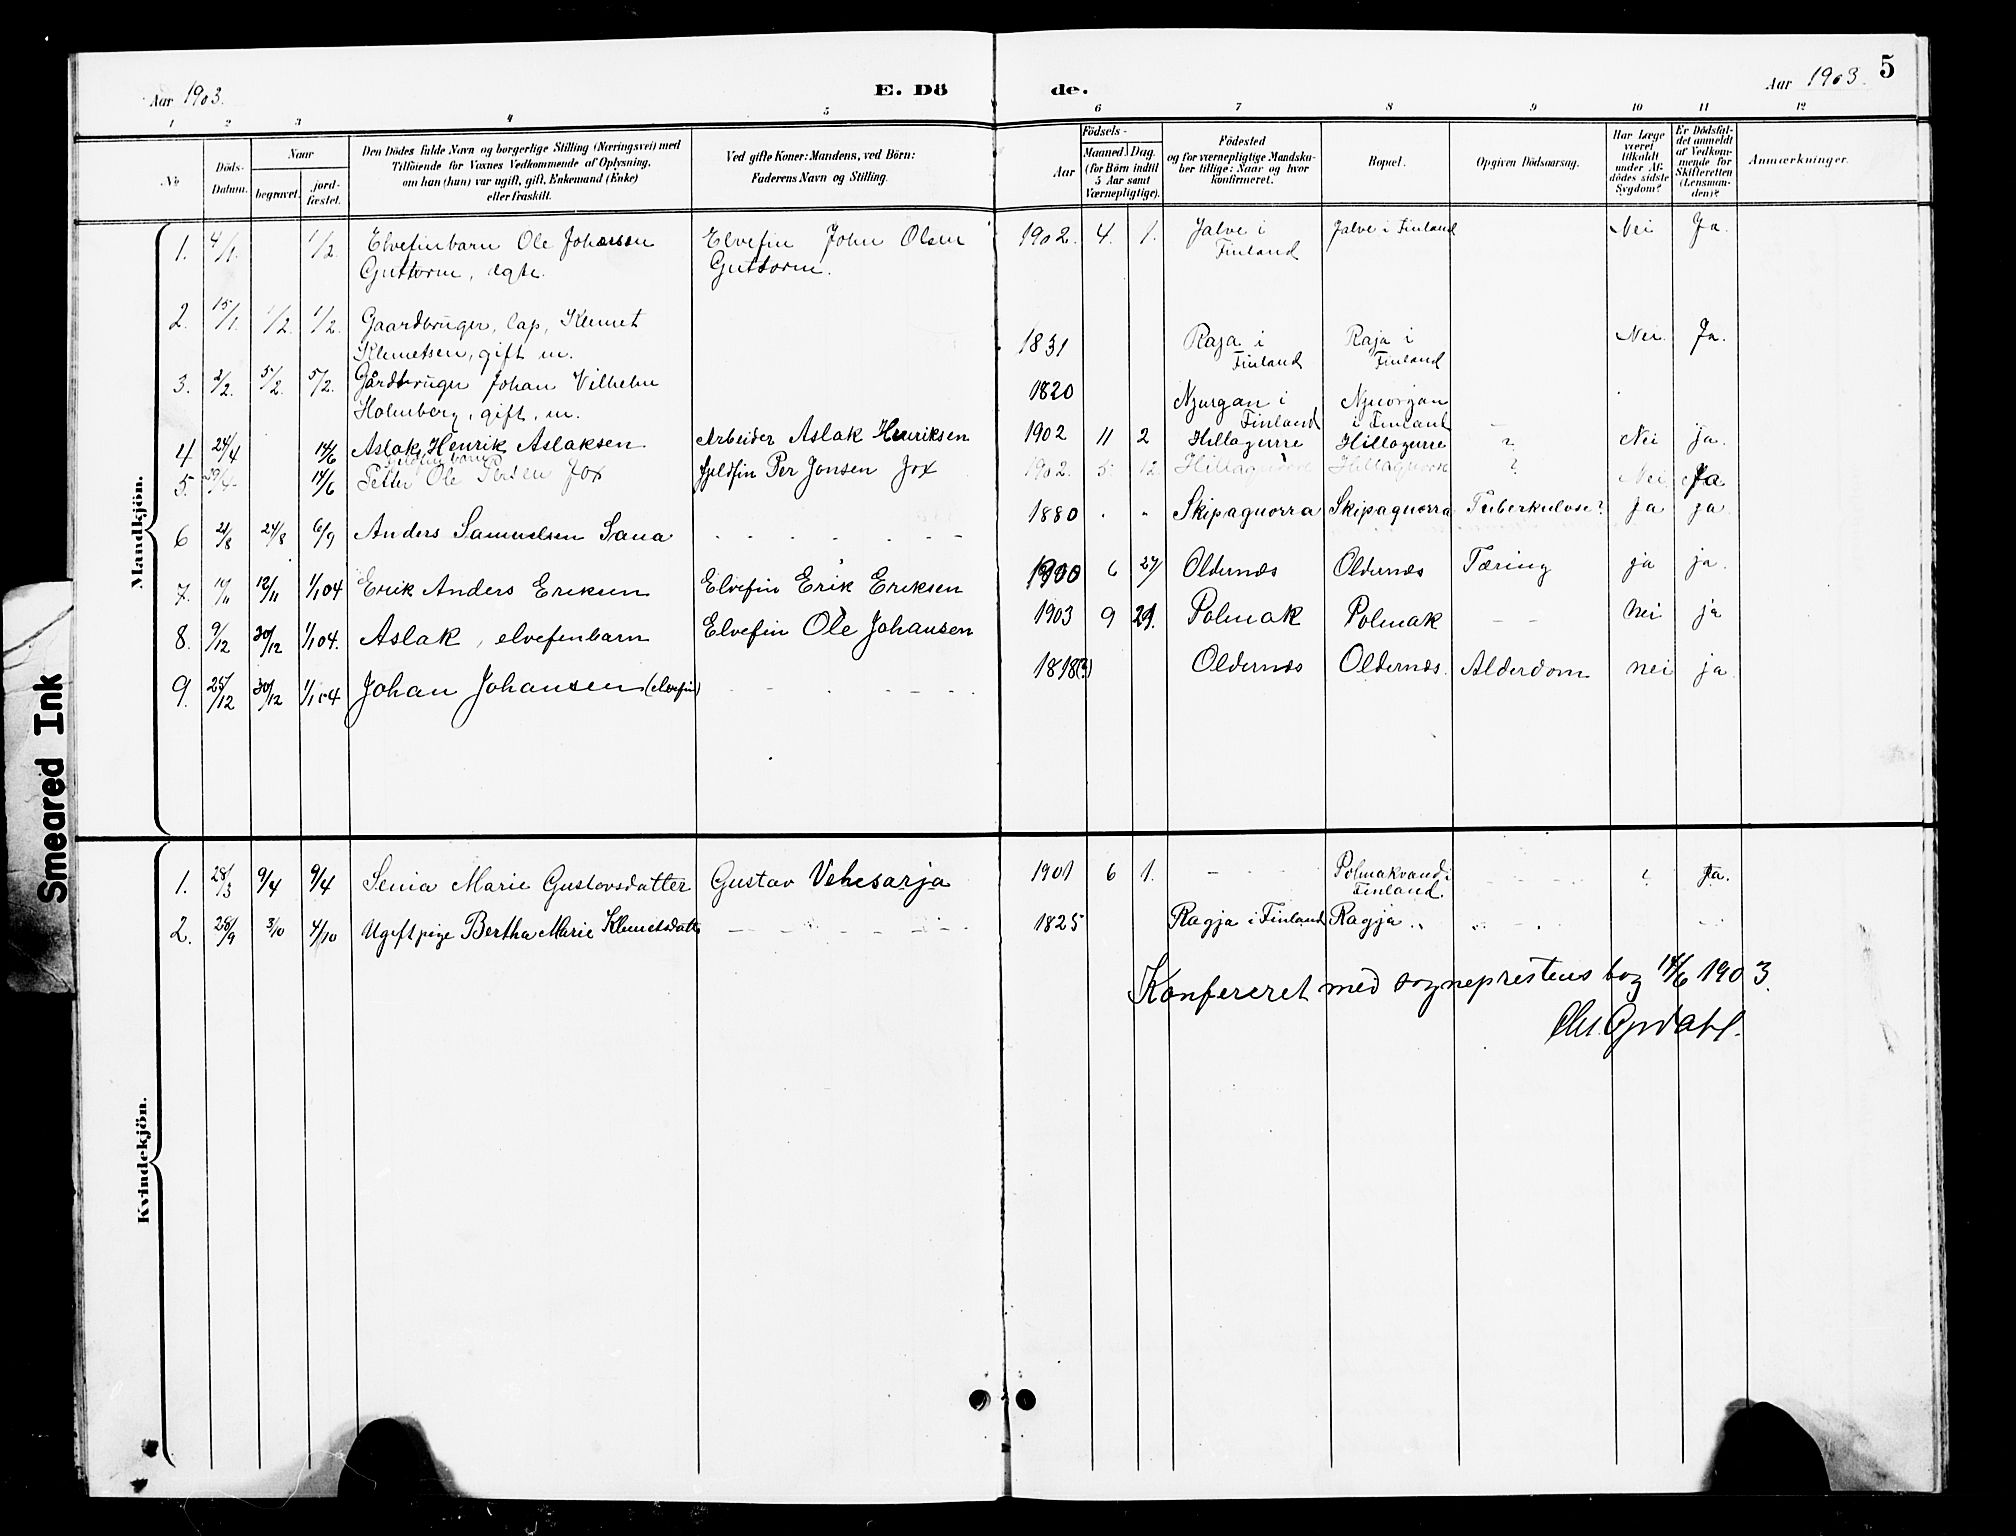 Aar 1903.
E. Dö
de.
Aar 1903.
5
1 2 3 4 5 6 7 8 9 10 11 12
No
Döds-Datum.
Naar
begravet.
jord-fæstet.
Den Dödes fulde Navn og borgerlige Stilling (Næringsvei) med
Tilföiende for Voxnes Vedkommende af Oplysning,
om han (hun) var ugift, gift, Enkemand (Enke)
eller fraskilt.
Ved gifte Koner: Mandens, ved Börn:
Faderens Navn og Stilling.
Födsels-
Aar
Maaned. Dag.
(for Börn indtil
5 Aar samt
Værnepligtige).
Födested
og for værnepligtige Mandska-
ber tillige: Naar og hvor
konfirmeret.
Bopæl.
Opgiven Dödsaarsag.
Har Læge
været
tilkaldt
under Af-
dödes sidste
Sygdom?
Er Dödsfal-
det anmeldt
af Vedkom-
mende for
Skifteretten
(Lensman-
den)?
Anmærkninger.
Mandkjön.
1. 4/1. 1/2. Elvefinbarn Ole Johnssen Elvefin John Olsen 1902. 4. 1. Jalve i Jalve i Finland Nei Ja.
Guttorm, egte. Guttorm. Finland
2. 15/1. 1/2. 1/2. Gaardbruger, lap, Klemet 1831 Raja i Raja i Nei. Ja.
Klemetsen, gift m. Finland Finland
3. 2/2. 5/2. 5/2. Gårdbruger Johan Vilhelm 1820 Njurgan i Njuorgan
Holmberg, gift, m. Finland i Finland
4 24/4 14/6 Aslak Henrik Aslaksen Arbeider Aslak Henriksen 1902 11 2 Hillagurre Hillagurre ? Nei ja.
5. 29/4 14/6 Petter Ole Persen Jox fjeldfin Per Jonsen Jox 1902. 5 12 Hillaguorre Hillaguorre ? Nei Ja
6 2/8 24/8 6/9 Anders Samuelsen Sana 1880 Skipaguorra Skipaguorra Tuberkulose? ja ja
7. 10/11 12/11 1/1 04 Erik Anders Eriksen Elvefin Erik Eriksen 1900 6 27 Oldernæs Oldernæs Tæring ja ja.
8. 9/12 30/12 1/1 04. Aslak, elvefinbarn Elvefin Ole Johansen 1903 9 29. Polmak Polmak – – nei ja
9. 25/12 30/12 1/1 04 Johan Johansen (elvefin) 1818(?) Oldernæs Oldernæs. Alderdom nei ja
Kvindekjön.
1. 28/3 9/4 9/4 Senia Marie Gustavsdatter Gustav Vehesarja 1901 6 1. – Polmakvand i ? Ja.
Finland.
2. 28/9 3/10 4/10 Ugift pige Bertha Marie Klemetsdatt 1825 Ragja i Finland Ragja „
Konfereret med sogneprestens bog 14/6 1903.
Chr. Opdahl.
Smeared Ink